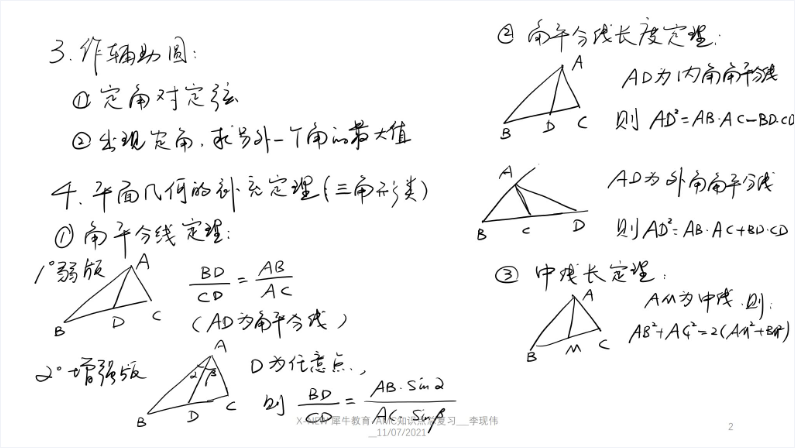 3. 作辅助圆:
① 定角对定弦
② 出现定角，求另外一个角的最大值
4. 平面几何的补充定理(三角形类)
① 角平分线定理:
1° 弱版
A
B
D
C
BD/CD = AB/AC
(AD为角平分线)
2° 增强版
A
α
β
B
D
C
D为任意点,
则 BD/CD = AB·Sinα/AC·Sinβ
② 角平分线长度定理:
A
B
D
C
AD为内角角平分线
则 AD²=AB·AC-BD·CD
A
B
C
D
AD为外角角平分线
则 AD²=AB·AC+BD·CD
③ 中线长定理:
A
B
M
C
AM为中线,则:
AB²+AC²=2(AM²+BM²)
犀牛教育 AMC知识点总复习__李现伟
__11/07/2021
2